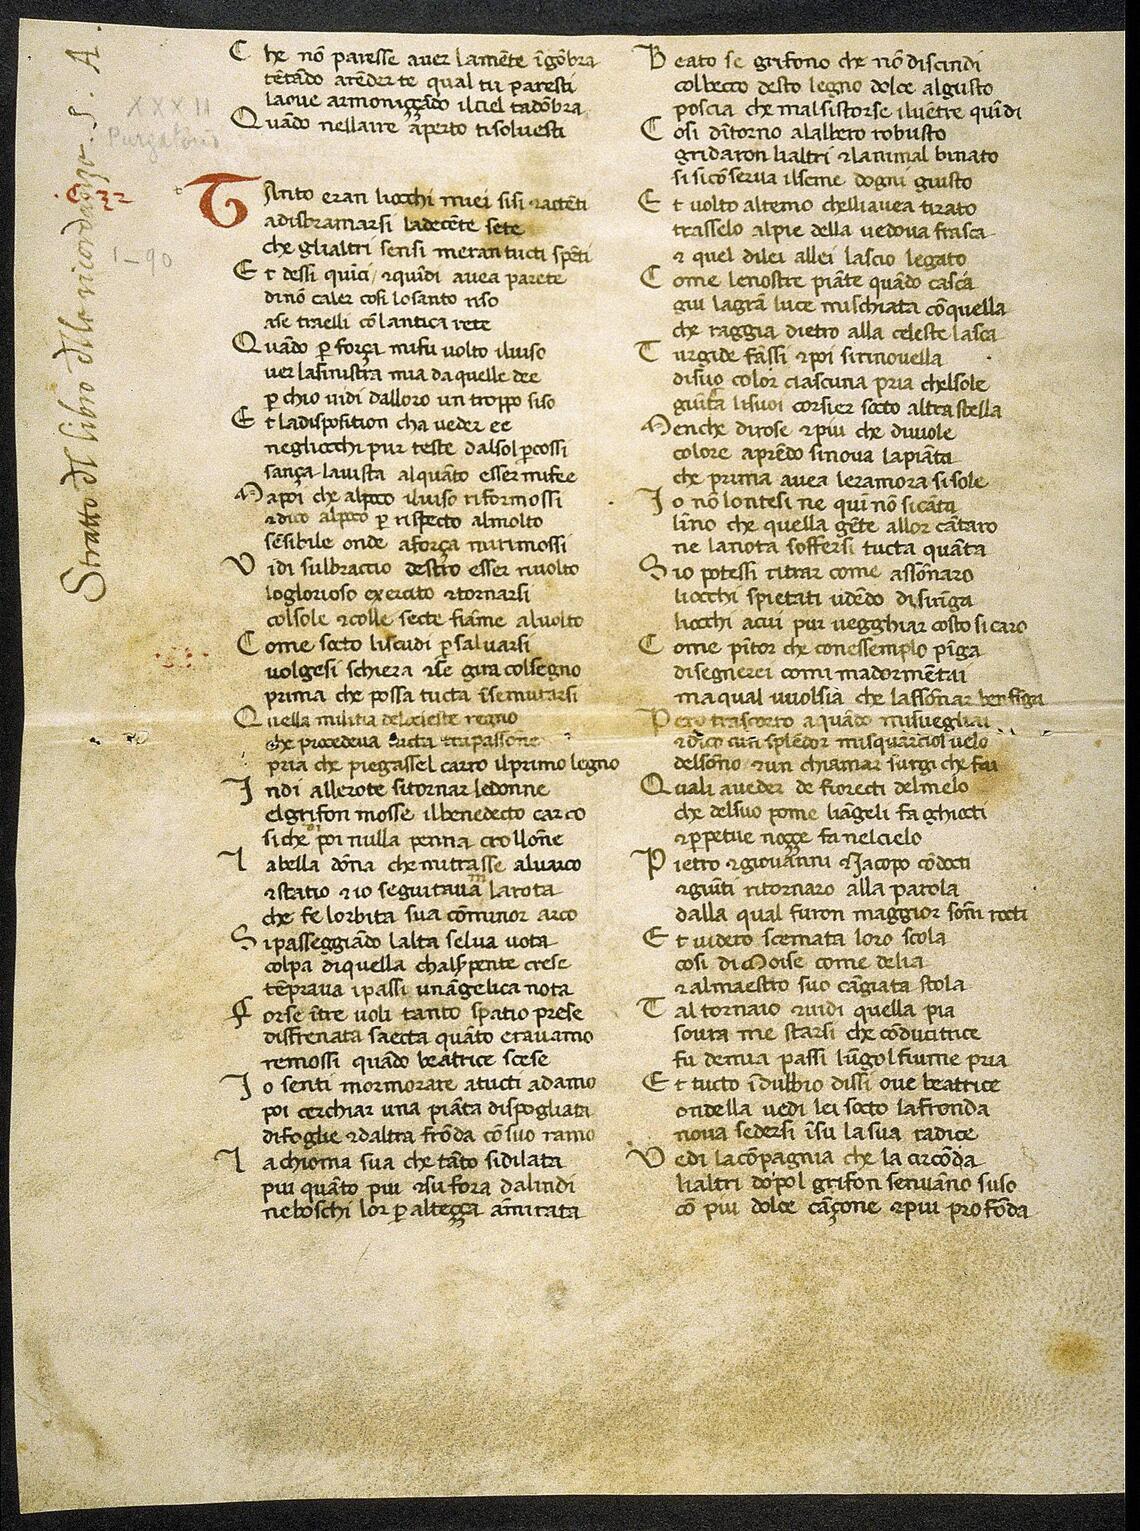 Stratto dl libro dlle ricordanze . s . A .
XXXII
Purgatorio
1–90
C he nō paresse auer lamēte īgōbra
tētādo arēder te qual tu paresti
laoue armoniççādo ilciel tadōbra
Quādo nellaire aperto tisoluesti
TAnto eran liocchi miei fisi ⁊actēti
adisbramarsi ladecēte sete
che glialtri sensi meran tucti spēti
E t dessi quīci / ⁊quīdi auea parete
dinō caler cosi losanto riso
ase traelli cō lantica rete
Quādo p̲ força mifu uolto iluiso
uer lasinistra mia da quelle dee
p̲ chio uidi dalloro un troppo fiso
E t ladisposition cha ueder ee
negliocchi pur teste dalsol p̲cossi
sança lauista alquāto esser mifee
M apoi che alpoco iluiso riformossi
⁊dico alpoco p̲ rispecto almolto
sēsibile onde aforça mirimossi
V idi sulbraccio destro esser riuolto
loglorioso exercito ⁊tornarsi
colsole ⁊colle secte fiāme aluolto
C ome socto liscudi p̲ saluarsi
uolgesi schiera ⁊se gira colsegno
prima che possa tucta īsemutarsi
Quella militia delceleste regno
che procedeua tucta trapassone
pria che piegassel carro ilprimo legno
I ndi allerote sitornar ledonne
elgrifon mosse ilbenedecto carco
si che poi nulla penna crollōne
L abella dōna che mitrasse aluarco
⁊statio ⁊io seguitaua larota
che fe lorbita sua cōminor arco
S ipasseggiādo lalta selua uota
colpa diquella chalsp̲ente crese
tēpraua ipassi unāgelica nota
F orse ītre uoli tanto spatio prese
disfrenata saecta quāto erauamo
remossi quādo beatrice scese
I o senti mormorare atucti adamo
poi cerchiar una piāta dispogliata
difoglie ⁊daltra frōda cō suo ramo
L achioma sua che tāto sidilata
piu quāto piu ⁊su fora dalindi
neboschi lor p̲ alteçça āmirata
B eato se grifono che nō discindi
colbecco desto legno dolce algusto
poscia che malsistorse iluētre quīdi
C osi dītorno alalbero robusto
gridaron lialtri ⁊lanimal binato
si sicōserua ilseme dogni giusto
E t uolto altemo chelliauea tirato
trasselo alpie della uedoua frasca
⁊ quel dilei allei lascio legato
C ome lenostre piāte quādo casca
giu lagrā luce mischiata cōquella
che raggia dietro alla celeste lasca
T urgide fāssi ⁊poi sirinouella
disuo color ciascuna pria chelsole
giūta lisuoi corsier socto altra stella
M enche dirose ⁊piu che diuiole
colore aprēdo sinoua lapiāta
che prima auea leramora si sole
I o nō lontesi ne qui nō sicāta
līno che quella gēte allor cātaro
ne lanota soffersi tucta quāta
S io potessi ritrar come assōnaro
liocchi spietati udēdo disiringa
liocchi acui pur uegghiar costo si caro
C ome pītor che conessemplo pīga
disegnerei comi madormētai
ma qual uuolsia che lassōnar ben figa
Pero trascorro a quādo misuegliai
⁊dico cun splēdor misquarciol uelo
delsōno ⁊un chiamar surgi che fai
Quali aueder de fiorecti delmelo
che delsuo pome liāgeli fa ghiocti
⁊p̲petue noççe fa nelcielo
P ietro ⁊giouāni ⁊Jacopo cōdocti
⁊giūti ritornaro alla parola
dalla qual furon maggior sōni rocti
E t uidero scemata loro scola
cosi di Moise come delia
⁊almaestro suo cāgiata stola
T al tornaio ⁊uidi quella pia
soura me starsi che cōducitrice
fu demia passi lūgol fiume pria
E t tucto īdubbio dissi oue beatrice
ondella uedi lei socto lafronda
noua sedersi īsu la sua radice
V edi lacōpagnia che la circōda
lialtri dopol grifon senuāno suso
cō piu dolce cāçone ⁊piu profōda